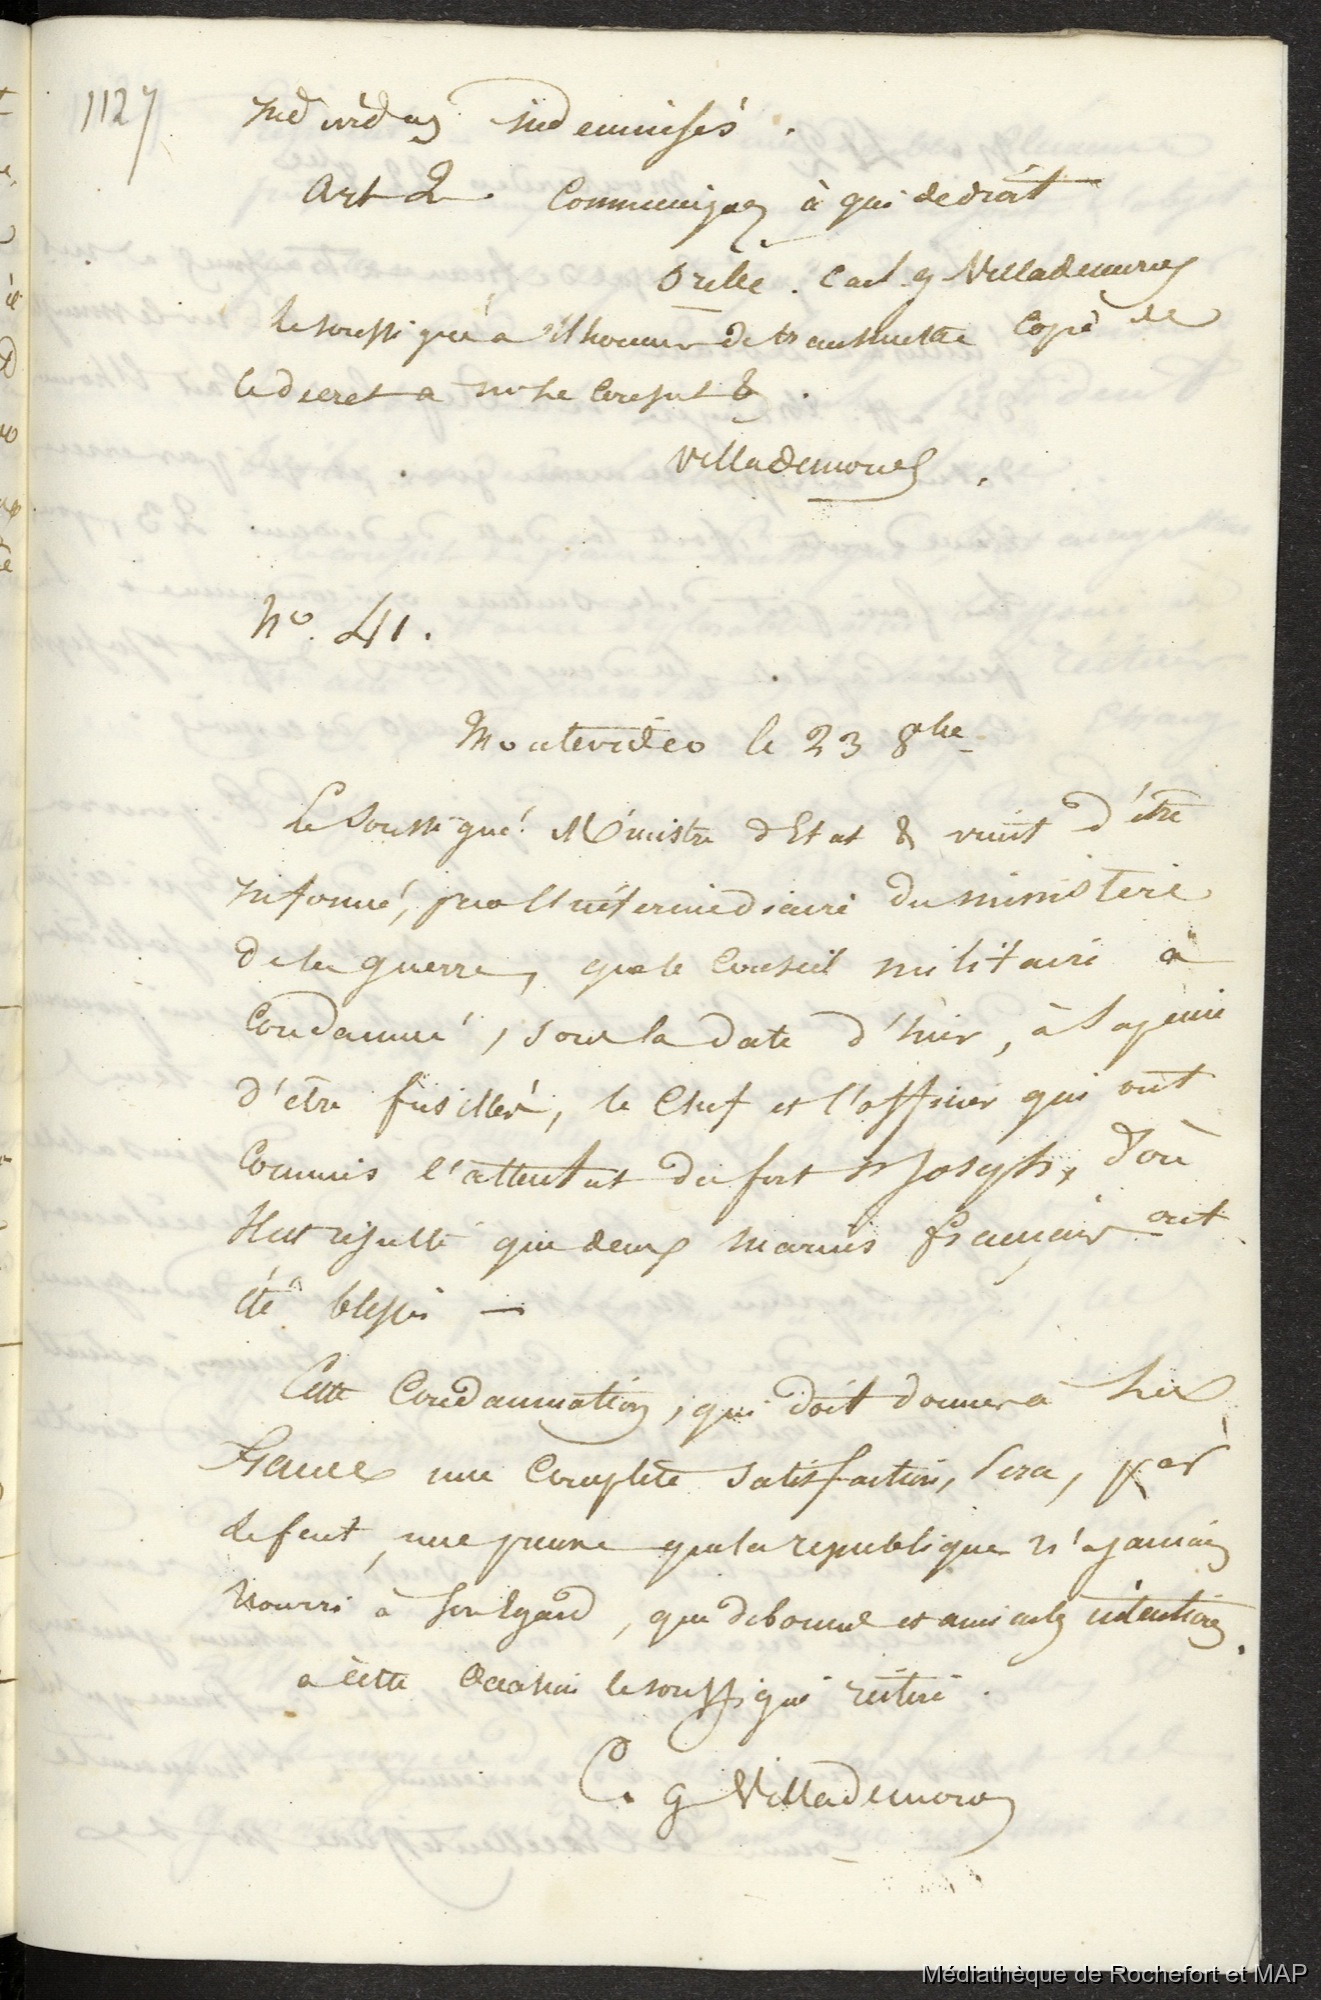 1127
individus indemnisés.
Art 2. Communiquez à qui de droit
Oribe. Carl. g Villademoros
le soussigné a l'honneur de transmettre copie de
ce decret a mr le Consul &.
Villademoros.
No. 41.
Montevideo le 23 8bre
Le Soussigné Ministre d'Etat & vient d'être
informé, par l'intermédiaire du ministere
de la guerre, que le Conseil militaire a
Condamné, sous la date d'hier, à la peine
d'être fusillés, le Chef et l'officier qui ont
Commis l'attentat du fort St Joseph, d'où
il est résulté que deux marins français ont
été blessés —
Cette Condamnation, qui doit donner à la
France une complète satisfaction, sera, par
le fait, une preuve que la republique n'a jamais
nourri à son Egard, que de bonnes et amicales intentions.
a cette occasion le soussigné réitère.
C. g Villademoros
Médiathèque de Rochefort et MAP